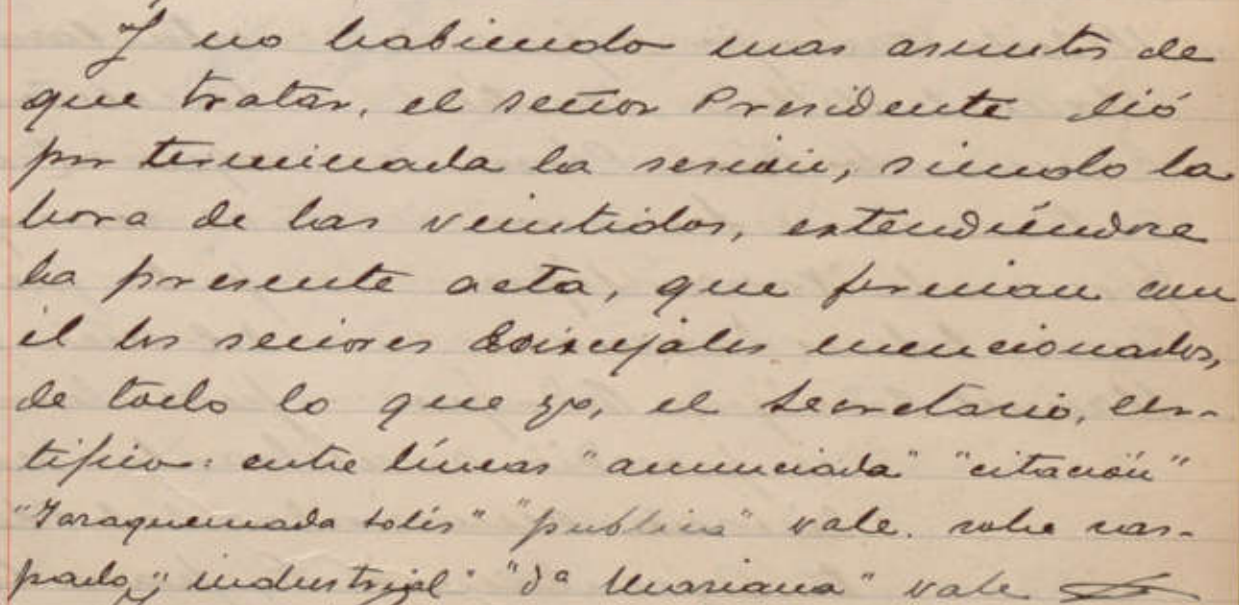 Y no habiendo mas asuntos de
que tratar, el señor Presidente dió
por terminada la sesión, siendo la
hora de las veintidos, extendiéndose
la presente acta, que firman con
él los señores Concejales mencionados,
de todo lo que yo, el Secretario, cer-
tifico: entre líneas "anunciada" "citación"
"Jaraquemada Solís" "publica" vale. sobre ras-
pado, "industrial" "Dª Mariana" vale